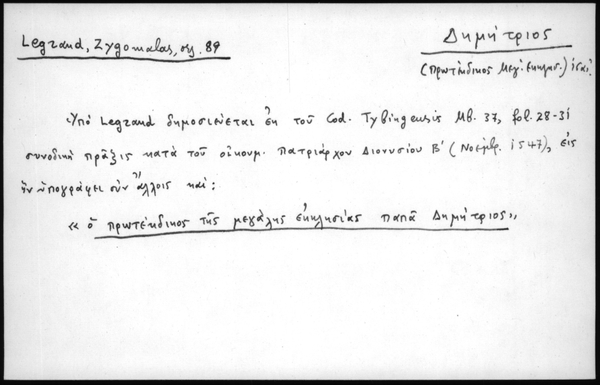 Legrand, Zygomalas, σελ. 89
Δημήτριος
(Πρωτέκδικος Μεγ. Εκκλησ.) ις' αἰ.
Ὑπό Legrand δημοσιεύεται ἐκ τοῦ Cod. Tybingensis Mb. 37, fol. 28-31
συνοδική πρᾶξις κατά τοῦ οἰκουμ. Πατριάρχου Διονυσίου Β' (Νοέμβρ. 1547), εἰς
ἥν ὑπογράφει σύν ἄλλοις καί:
« ὁ πρωτέκδικος τῆς μεγάλης ἐκκλησίας παπᾶ Δημήτριος»